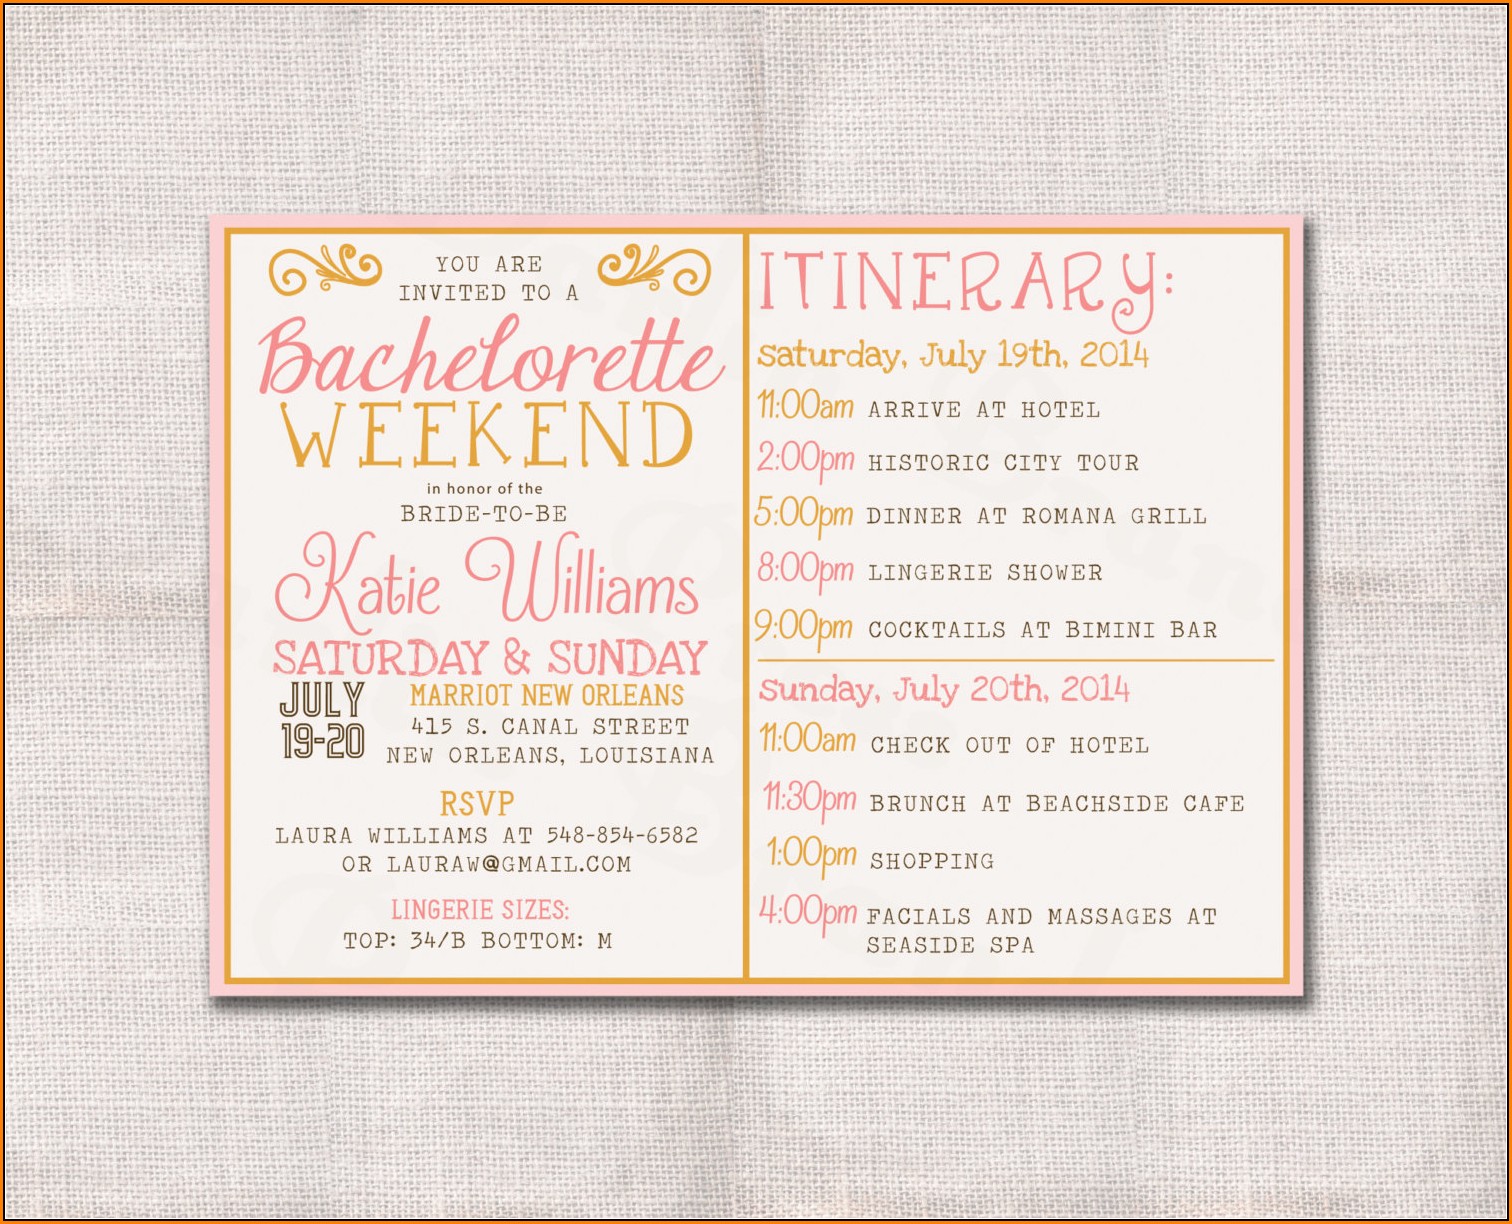 YOU ARE
INVITED TO A
Bachelorette
WEEKEND
in honor of the
BRIDE-TO-BE
Katie Williams
SATURDAY & SUNDAY
JULY
19-20
MARRIOT NEW ORLEANS
415 S. CANAL STREET
NEW ORLEANS, LOUISIANA
RSVP
LAURA WILLIAMS AT 548-854-6582
OR LAURAW@GMAIL.COM
LINGERIE SIZES:
TOP: 34/B BOTTOM: M
ITINERARY:
Saturday, July 19th, 2014
11:00am ARRIVE AT HOTEL
2:00pm HISTORIC CITY TOUR
5:00pm DINNER AT ROMANA GRILL
8:00pm LINGERIE SHOWER
9:00pm COCKTAILS AT BIMINI BAR
Sunday, July 20th, 2014
11:00am CHECK OUT OF HOTEL
11:30pm BRUNCH AT BEACHSIDE CAFE
1:00pm SHOPPING
4:00pm FACIALS AND MASSAGES AT
SEASIDE SPA